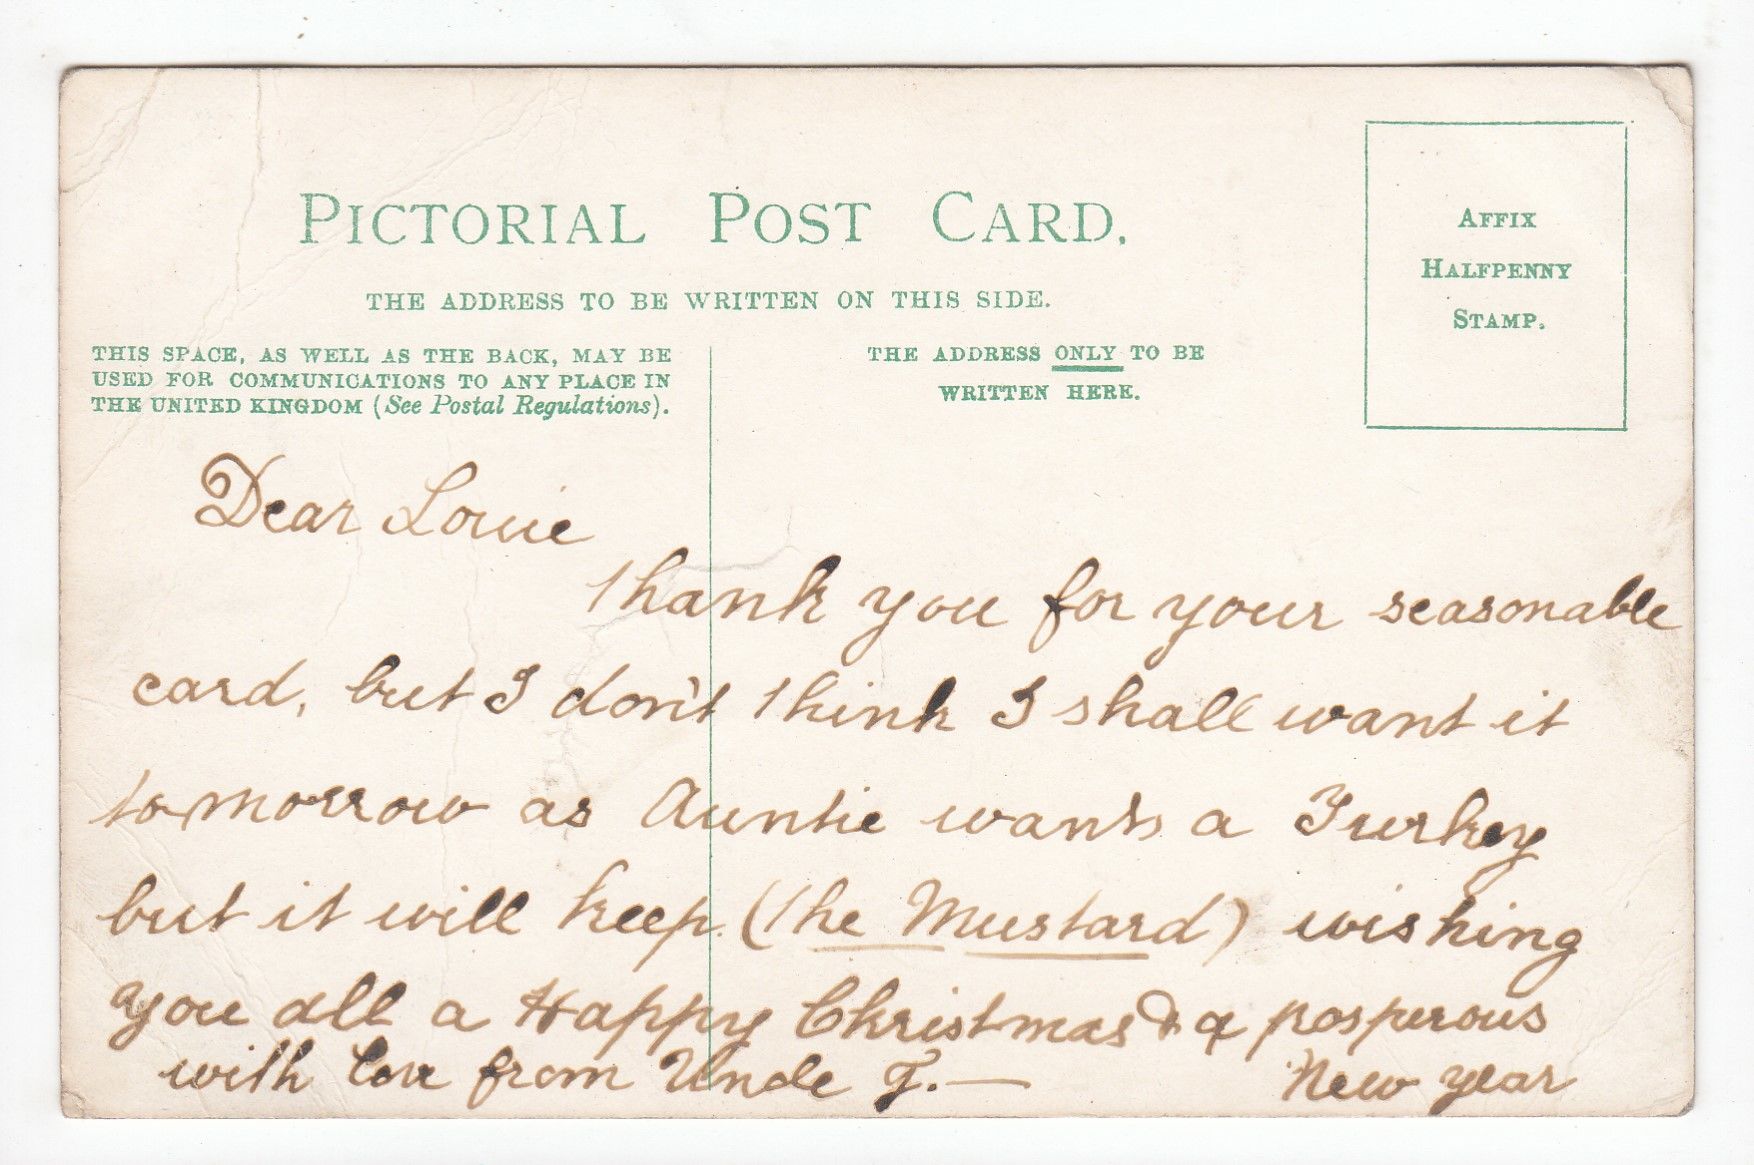 PICTORIAL POST CARD.
THE ADDRESS TO BE WRITTEN ON THIS SIDE.
AFFIX
HALFPENNY
STAMP.
THIS SPACE, AS WELL AS THE BACK, MAY BE
USED FOR COMMUNICATIONS TO ANY PLACE IN
THE UNITED KINGDOM (See Postal Regulations).
THE ADDRESS ONLY TO BE
WRITTEN HERE.
Dear Louie
Thank you for your seasonable
card, but I don't think I shall want it
tomorrow as Auntie wants a Turkey
but it will keep. (The Mustard) wishing
you all a Happy Christmas & a posperous
New year
with love from Uncle T.—